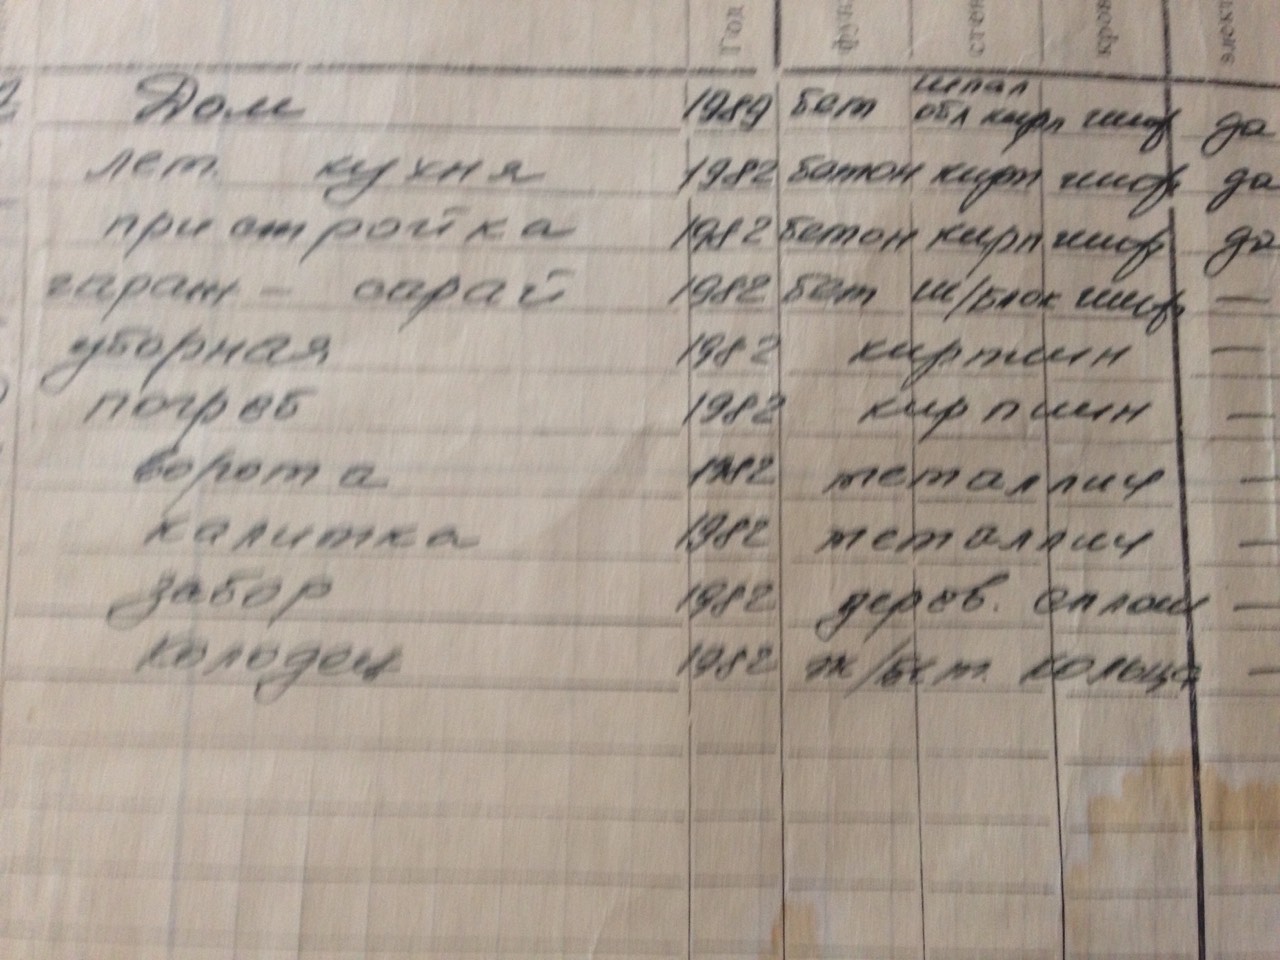 Год фун стен кров элект
шпал
Дом 1989 бет обл кирп шиф да
лет. кухня 1982 бетон кирп шиф да
пристройка 1982 бетон кирп шиф да
гараж - сарай 1982 бет ш/блок шиф —
уборная 1982 кирпичн —
погреб 1982 кирпичн —
ворота 1982 металлич —
калитка 1982 металлич —
забор 1982 дерев. сплош —
колодец 1982 ж/бет. кольца —